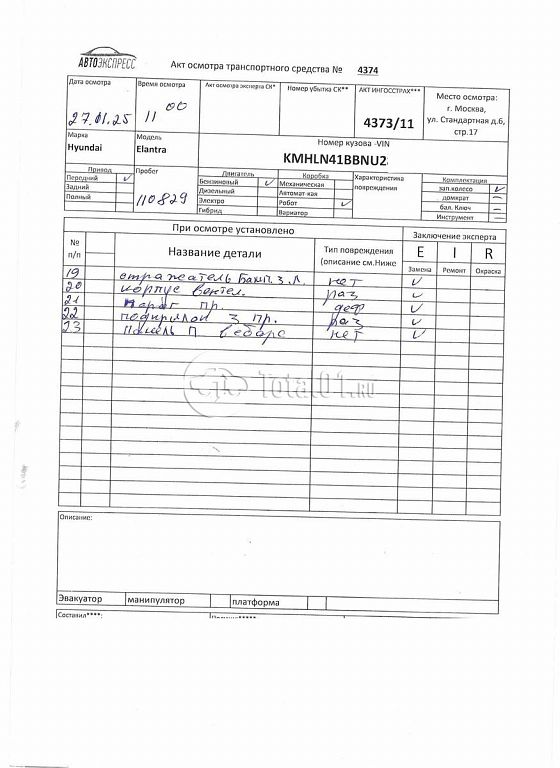 АВТОЭКСПРЕСС
Акт осмотра транспортного средства № 4374
Дата осмотра
27.01.25
Время осмотра
11 00
Акт осмотра эксперта СК*
Номер убытка СК**
АКТ ИНГОССТРАХ***
4373/11
Место осмотра:
г. Москва,
ул. Стандартная д.6,
стр.17
Марка
Hyundai
Модель
Elantra
Номер кузова -VIN
KMHLN41BBNU2
Привод
Передний ✓
Задний
Полный
Пробег
110829
Двигатель
Бензиновый ✓
Дизельный
Электро
Гибрид
Коробка
Механическая
Автомат-кая
Робот ✓
Вариатор
Характеристика
повреждения
Комплектация
зап.колесо ✓
домкрат –
бал. Ключ –
Инструмент –
При осмотре установлено
Заключение эксперта
№
п/п
Название детали
Тип повреждения
(описание см.Ниже
E I R
Замена Ремонт Окраска
19 отражатель Бамп. з. Л. нет ✓
20 корпус вентил. раз ✓
21 порог пр. деф ✓
22 подкрылок з пр. раз ✓
23 панель П нет ✓
Total01.RU
Описание:
Эвакуатор манипулятор платформа
Составил****: